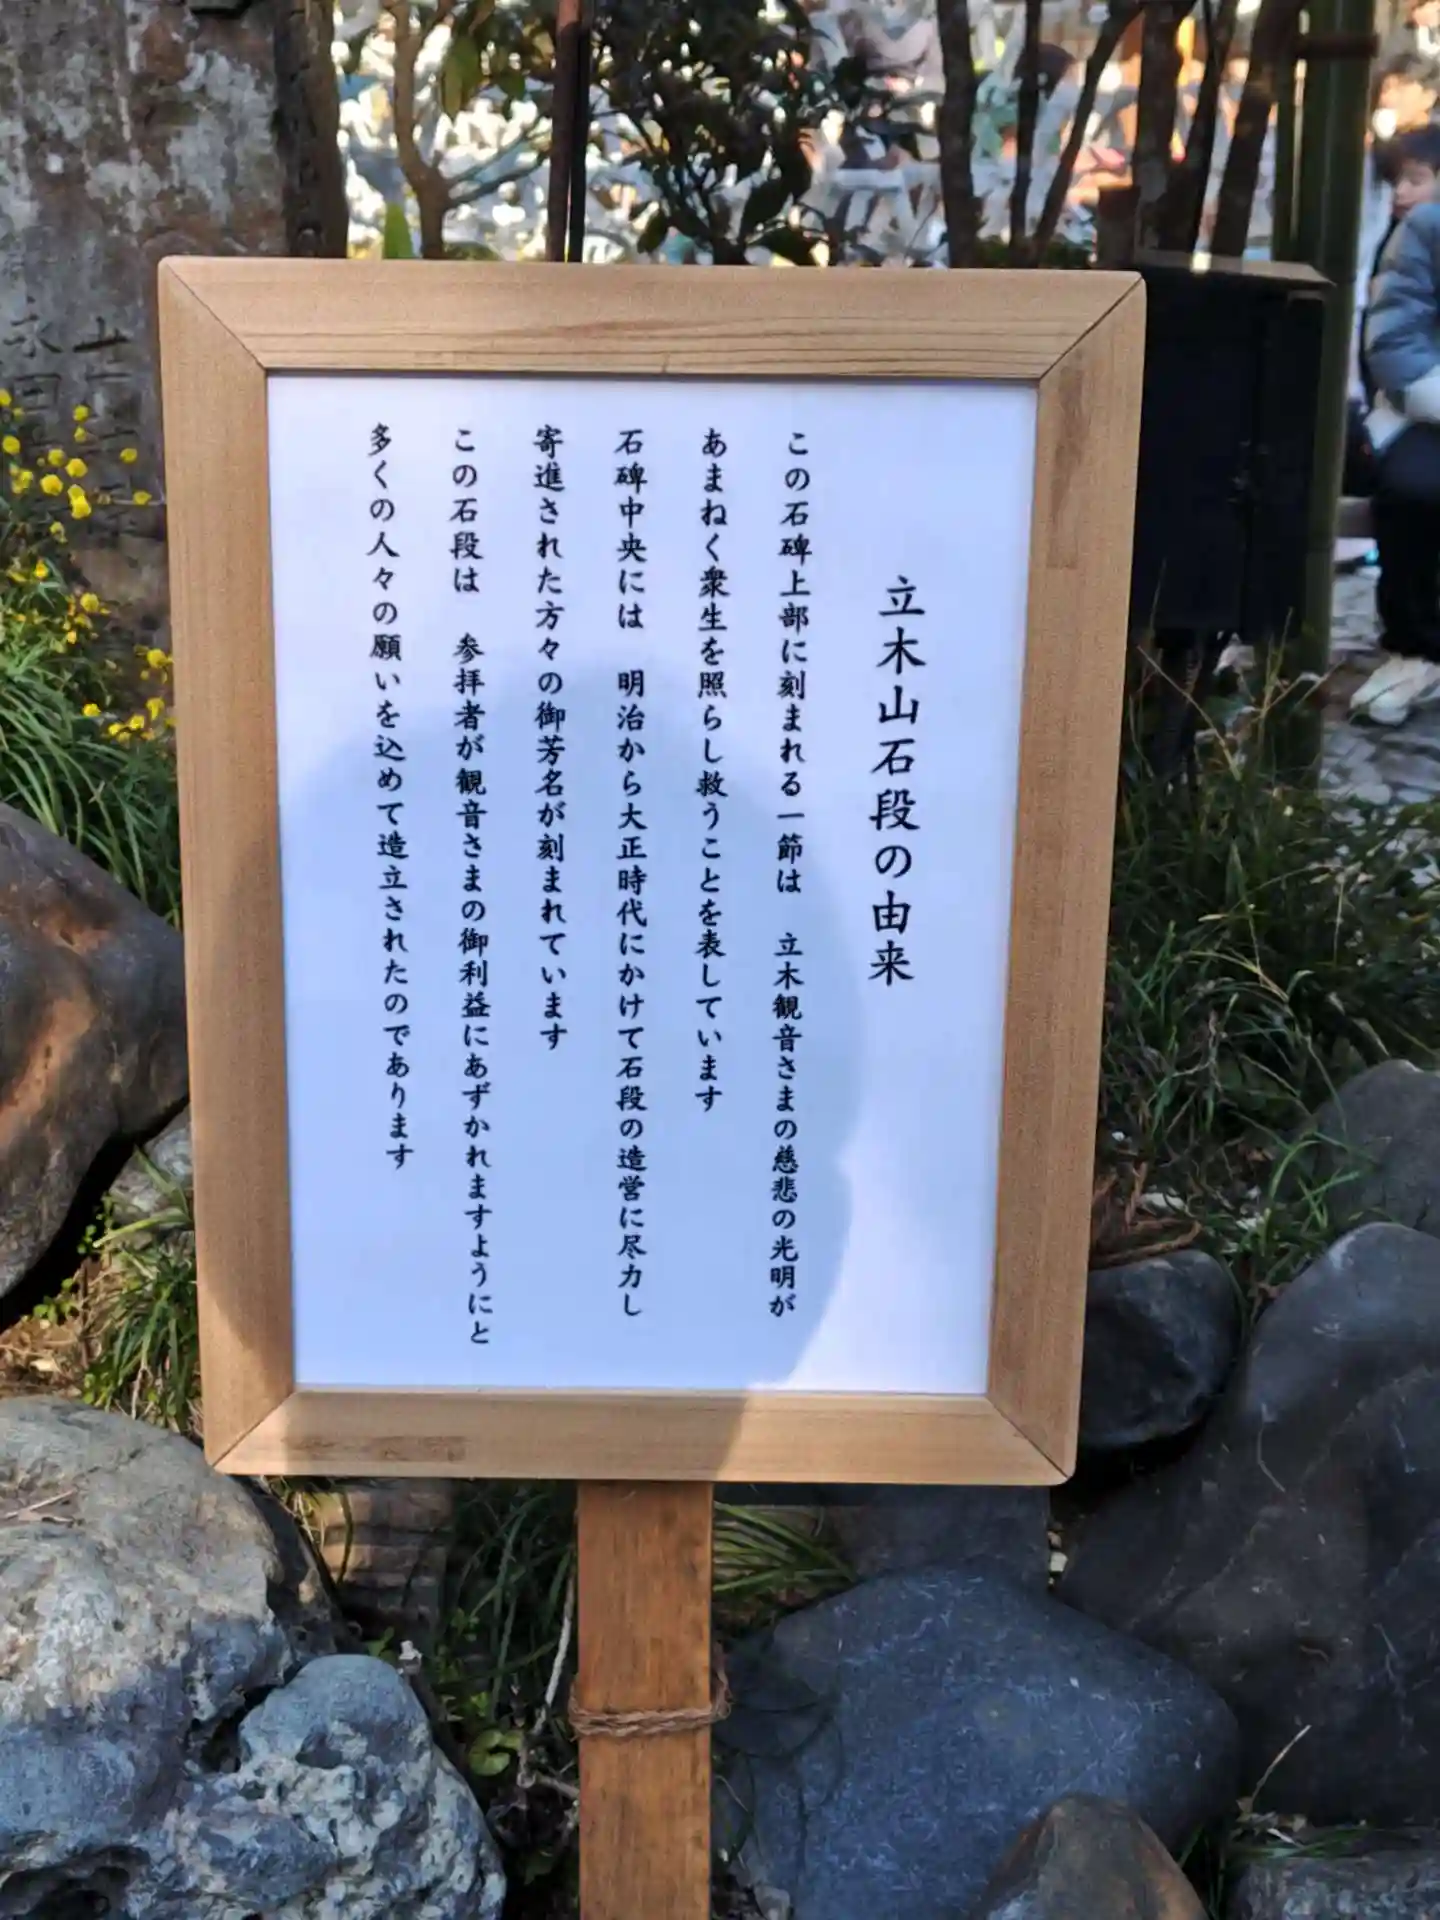 立木山石段の由来
この石碑上部に刻まれる一節は　立木観音さまの慈悲の光明が
あまねく衆生を照らし救うことを表しています
石碑中央には　明治から大正時代にかけて石段の造営に尽力し
寄進された方々の御芳名が刻まれています
この石段は　参拝者が観音さまの御利益にあずかれますようにと
多くの人々の願いを込めて造立されたのであります